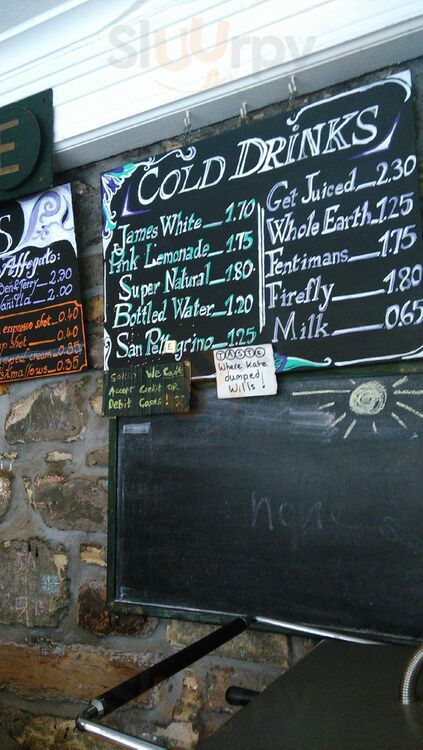 Sluurpy
E
COLD DRINKS
James White 1.70
Pink Lemonade 1.75
Super Natural 1.80.
Bottled Water 1.20
San Pellegrino 1.25
Get Juiced 2.30
Whole Earth 1.25
Fentimans 1.75
Firefly 1.80
Milk 0.65
S
Affogato:
2.30
Vanilla 2.00
espresso shot 0.40
shot 0.40
cream 0.35
mallows 0.35
Sorry We Can't
Accept Credit OR
Debit Cards!
TASTE
Where Kate
dumped
Wills!